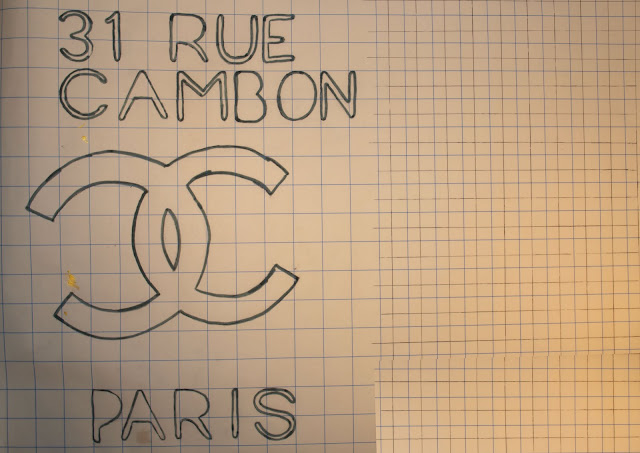 31 RUE
CAMBON
PARIS